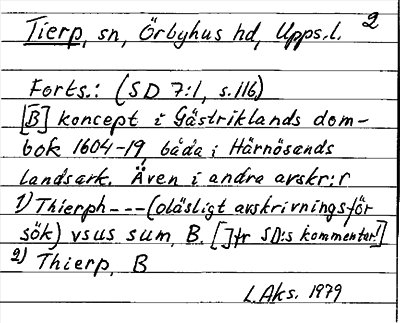 Tierp, sn, Örbyhus hd, Upps.l. 2
Forts.: (SD 7:1, s.116)
[B] koncept i Gästriklands dom-
bok 1604-19, båda i Härnösands
landsark. Även i andra avskr:r
1) Thierph --- (oläsligt avskrivningsför
sök) vsus sum, B. [] fr SD:s kommentar!]
2) Thierp, B
L.Aks. 1979